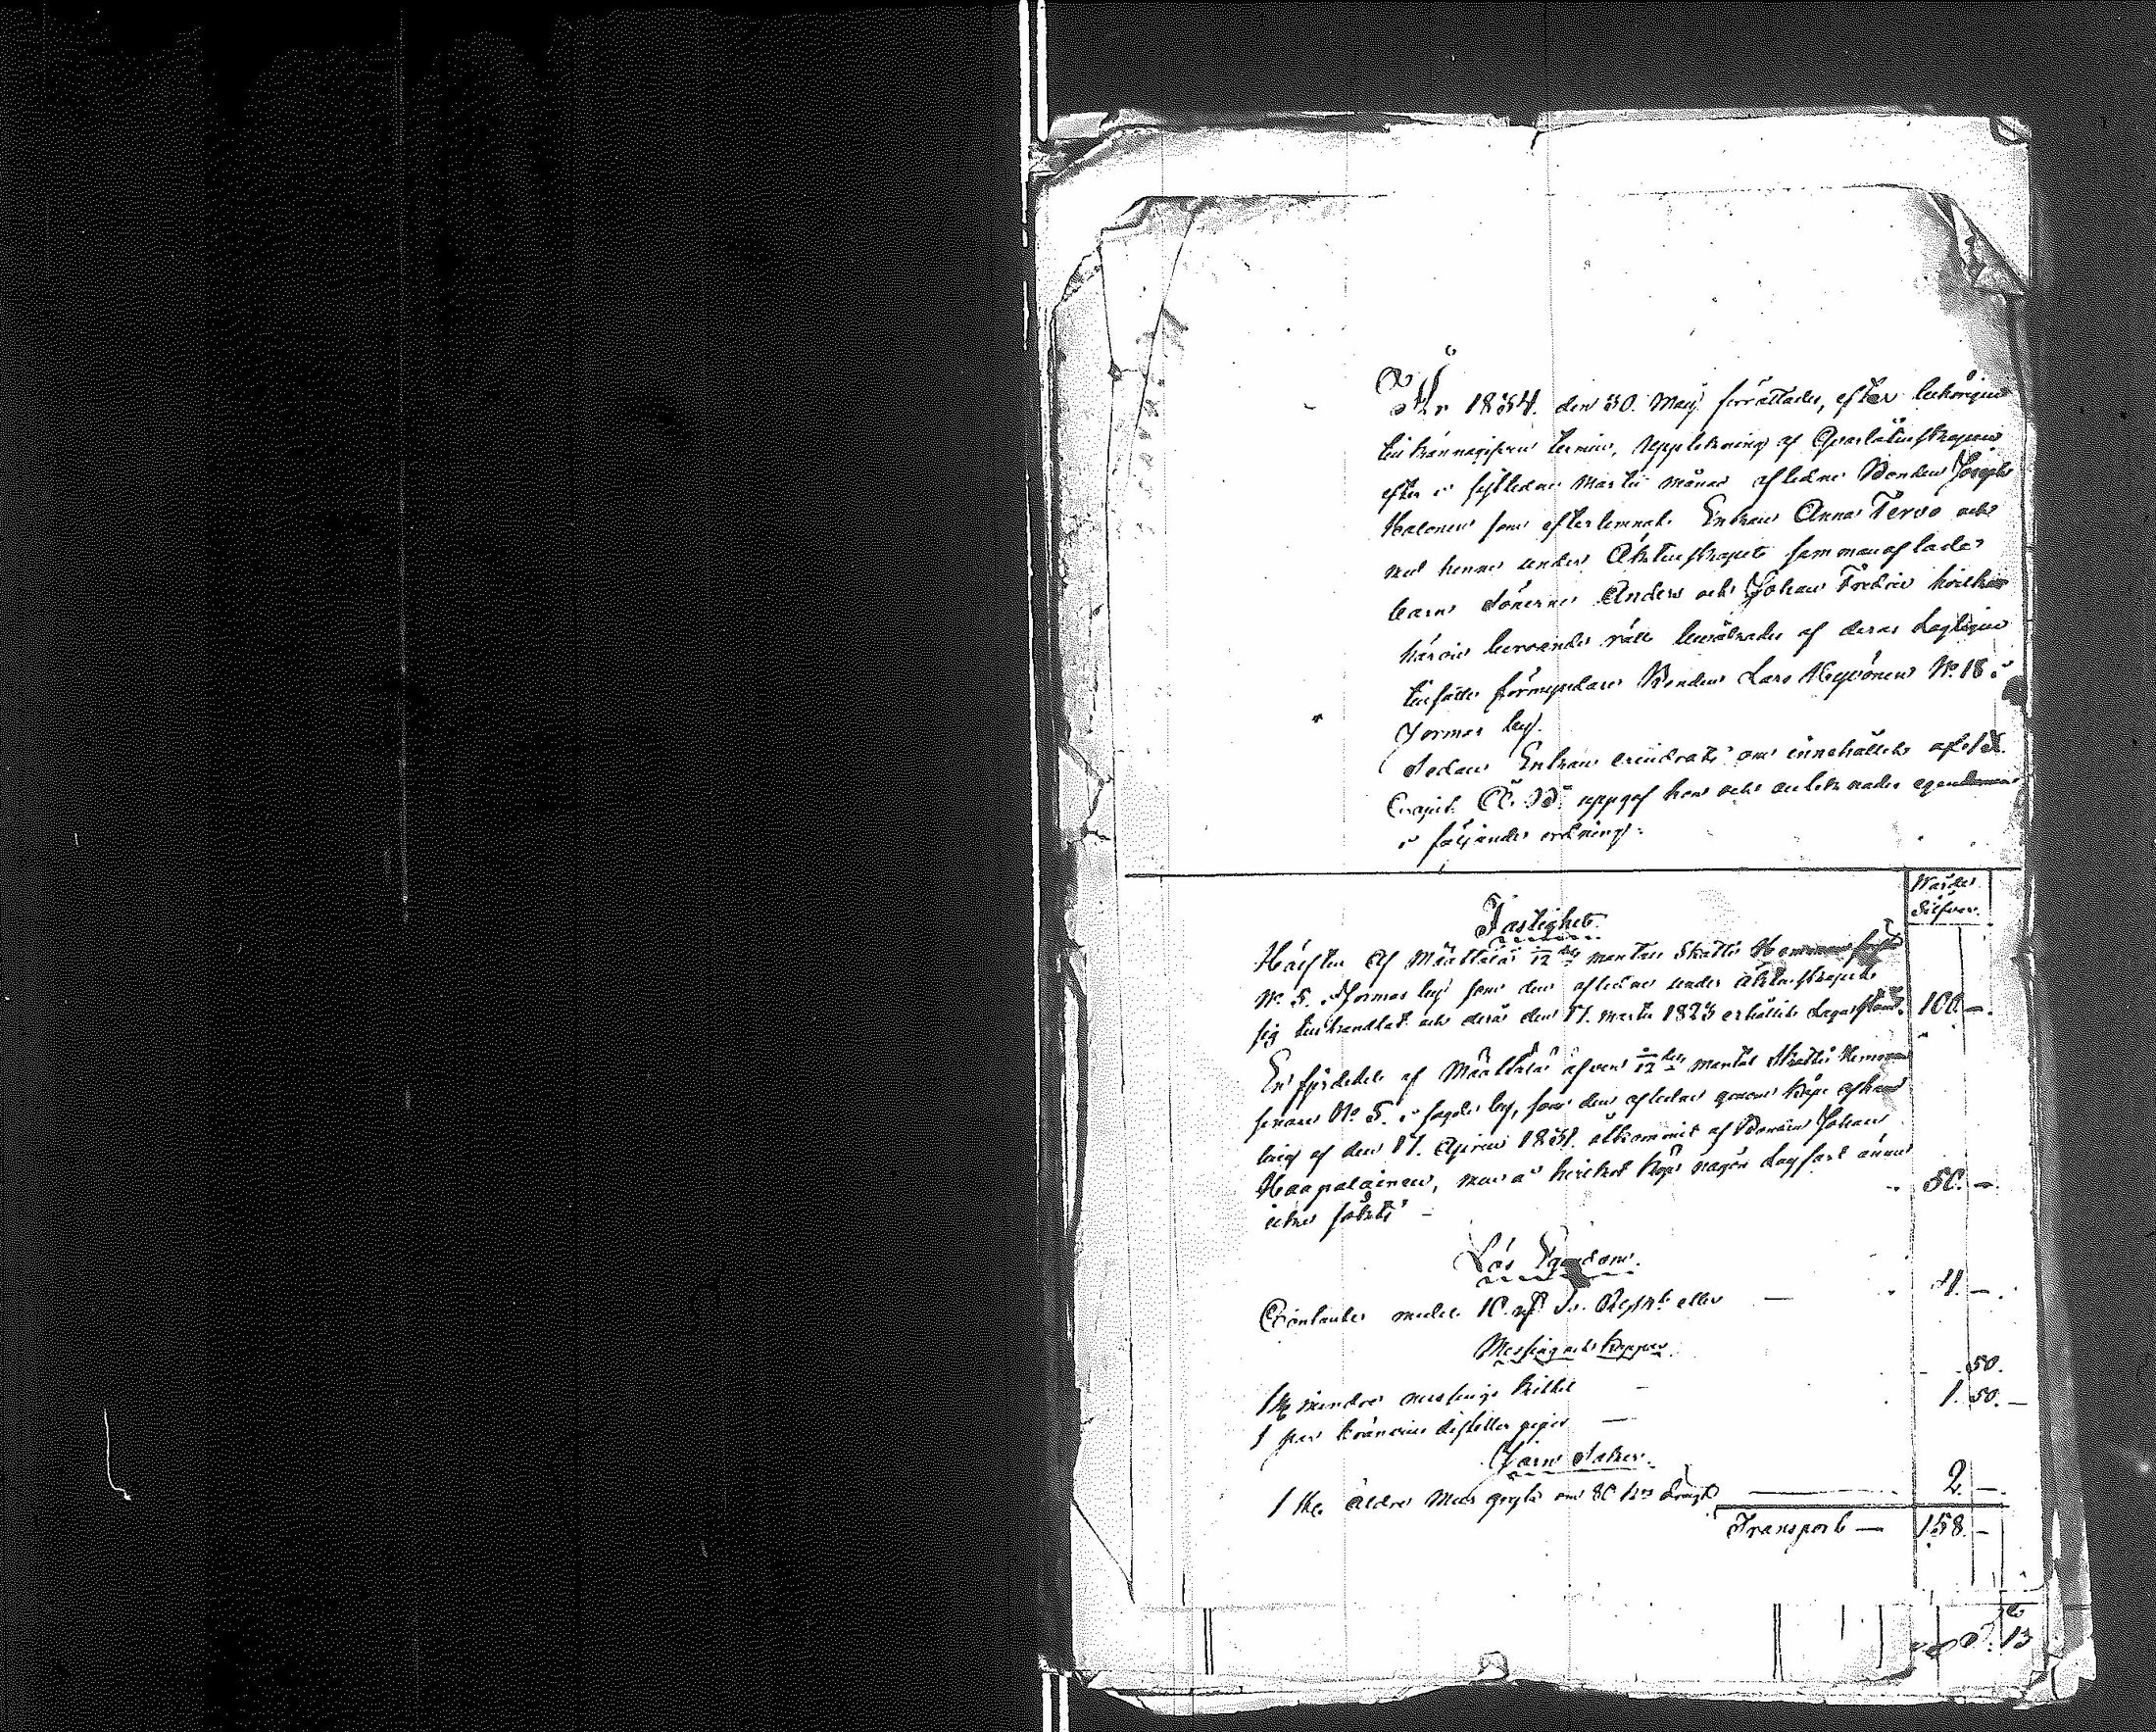 År 1834. den 30. Maij förrättades, efter behörigen
tillkännagifven termin, uppteckning af Qvarlåtenskapen
efter i sistledne Martii månad afledne Bonden Joseph
Halonen som efterlemnat Enkan Anna Tervo och
med henne under Äktenskapet sammanaflade
barn Sönerne Anders och Johan Fredric hvilkas
härvid beroende rätt bevakades af deras laglige
tillsatte förmyndare Bonden Lars Heyvönen No 18 i
Jormas by.
Sedan Enkan erindrats om innehållet af 9
Capit. Ä. B. uppgaf hon och antecknades egendomen
i följande ordning:
Värde
Silfver.
Fastighet.
Hälften af Määttälä 5/12 mantals Skatte Hemman
No 5. Jormas by som den aflidne under äktenskapet
sig tillhandlat och derå den 17. Martii 1823 erhållit Lagafånst. 100. —.
En fjerdedel af Määttälä äfven 5/12 mantal Skatte Hemman
No 5. i sagde by, som den aflidne genom köpe afhand
ling af den 17. Aprill 1831. åtkommit af Bonden Johan
Haapalainen, men å hvilket köp någon Lagfart ännu
icke sökts — 50. —.
Lös Egendom.
Contante medel 10. Rub. Bco. Ass. eller — 4. —.
Messing och Koppar.
1 st. mindre messings kittel — 50.
1 par distiller pipor — 1. 50. —
Järn Saker.
1 st. äldre Mess gryta om 80 — 2. —
Transport — 158. —
13